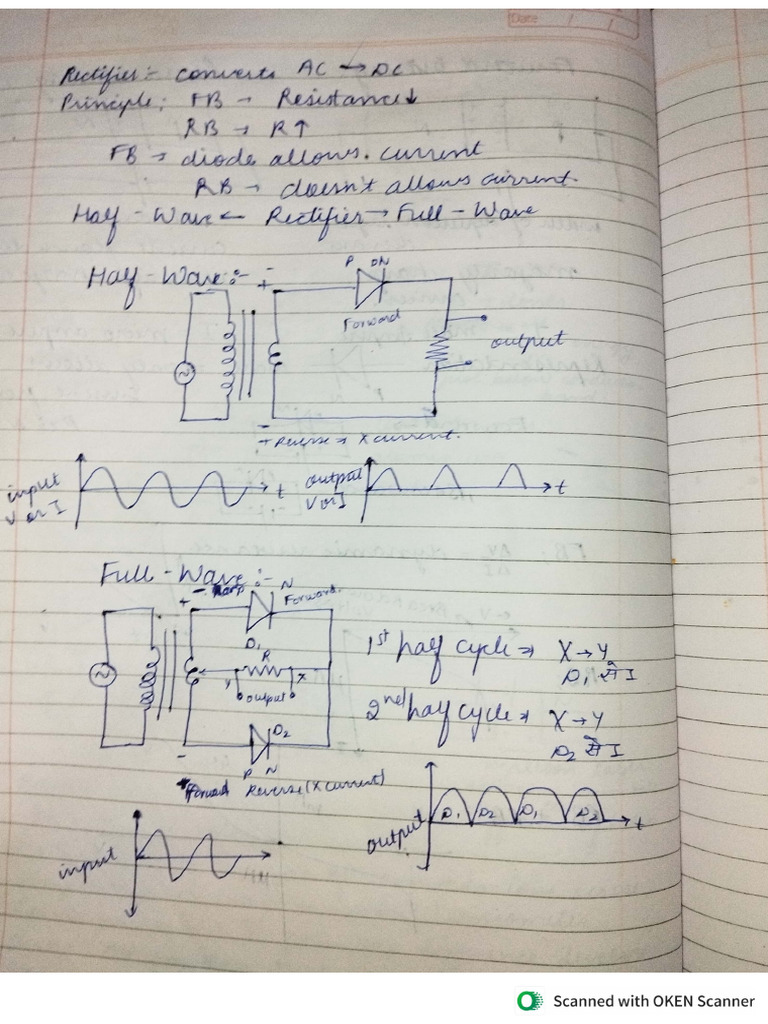 Date / /
Rectifier :- converts AC → DC
Principle; FB → Resistance↓
RB → R↑
FB → diode allows. current
RB → doesn't allows current.
Half-Wave ← Rectifier → Full-Wave
Half-Wave :-
+ -
P N
Forward
output
- + Reverse → X current.
input V or I
t
output V or I
t
Full-Wave :-
+ - N
Forward.
D1
R
Y X
output
D2
P N
-
+ Forward Reverse (X current)
1st half cycle → X → Y
D1 I
2nd half cycle → X → Y
D2 I
input
output
D1 D2 D1 D2
t
Scanned with OKEN Scanner